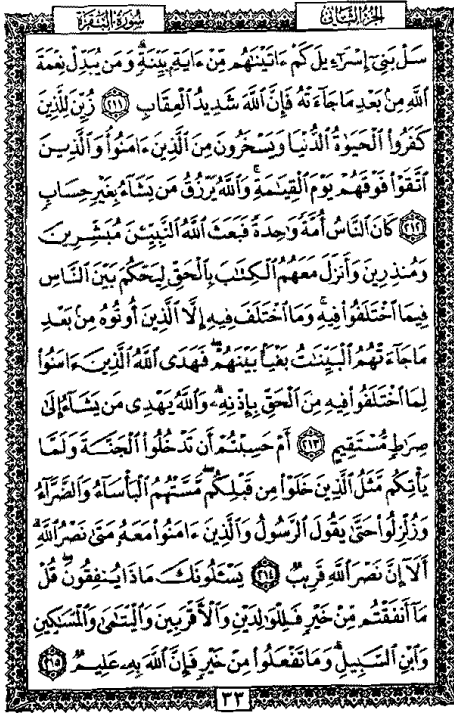 الجزء الثاني سورة البقرة
سَلْ بَنِىٓ إِسْرَٰٓءِيلَ كَمْ ءَاتَيْنَٰهُم مِّنْ ءَايَةٍۭ بَيِّنَةٍۗ وَمَن يُبَدِّلْ نِعْمَةَ
ٱللَّهِ مِنۢ بَعْدِ مَا جَآءَتْهُ فَإِنَّ ٱللَّهَ شَدِيدُ ٱلْعِقَابِ ٢١١ زُيِّنَ لِلَّذِينَ
كَفَرُوا۟ ٱلْحَيَوٰةُ ٱلدُّنْيَا وَيَسْخَرُونَ مِنَ ٱلَّذِينَ ءَامَنُوا۟ۘ وَٱلَّذِينَ
ٱتَّقَوْا۟ فَوْقَهُمْ يَوْمَ ٱلْقِيَٰمَةِۗ وَٱللَّهُ يَرْزُقُ مَن يَشَآءُ بِغَيْرِ حِسَابٍ
٢١٢ كَانَ ٱلنَّاسُ أُمَّةً وَٰحِدَةً فَبَعَثَ ٱللَّهُ ٱلنَّبِيِّۦنَ مُبَشِّرِينَ
وَمُنذِرِينَ وَأَنزَلَ مَعَهُمُ ٱلْكِتَٰبَ بِٱلْحَقِّ لِيَحْكُمَ بَيْنَ ٱلنَّاسِ
فِيمَا ٱخْتَلَفُوا۟ فِيهِۚ وَمَا ٱخْتَلَفَ فِيهِ إِلَّا ٱلَّذِينَ أُوتُوهُ مِنۢ بَعْدِ
مَا جَآءَتْهُمُ ٱلْبَيِّنَٰتُ بَغْيًۢا بَيْنَهُمْۖ فَهَدَى ٱللَّهُ ٱلَّذِينَ ءَامَنُوا۟
لِمَا ٱخْتَلَفُوا۟ فِيهِ مِنَ ٱلْحَقِّ بِإِذْنِهِۦۗ وَٱللَّهُ يَهْدِى مَن يَشَآءُ إِلَىٰ
صِرَٰطٍ مُّسْتَقِيمٍ ٢١٣ أَمْ حَسِبْتُمْ أَن تَدْخُلُوا۟ ٱلْجَنَّةَ وَلَمَّا
يَأْتِكُم مَّثَلُ ٱلَّذِينَ خَلَوْا۟ مِن قَبْلِكُمۖ مَّسَّتْهُمُ ٱلْبَأْسَآءُ وَٱلضَّرَّآءُ
وَزُلْزِلُوا۟ حَتَّىٰ يَقُولَ ٱلرَّسُولُ وَٱلَّذِينَ ءَامَنُوا۟ مَعَهُۥ مَتَىٰ نَصْرُ ٱللَّهِۗ
أَلَآ إِنَّ نَصْرَ ٱللَّهِ قَرِيبٌ ٢١٤ يَسْـَٔلُونَكَ مَاذَا يُنفِقُونَۖ قُلْ
مَآ أَنفَقْتُم مِّنْ خَيْرٍ فَلِلْوَٰلِدَيْنِ وَٱلْأَقْرَبِينَ وَٱلْيَتَٰمَىٰ وَٱلْمَسَٰكِينِ
وَٱبْنِ ٱلسَّبِيلِۗ وَمَا تَفْعَلُوا۟ مِنْ خَيْرٍ فَإِنَّ ٱللَّهَ بِهِۦ عَلِيمٌ ٢١٥
٣٣